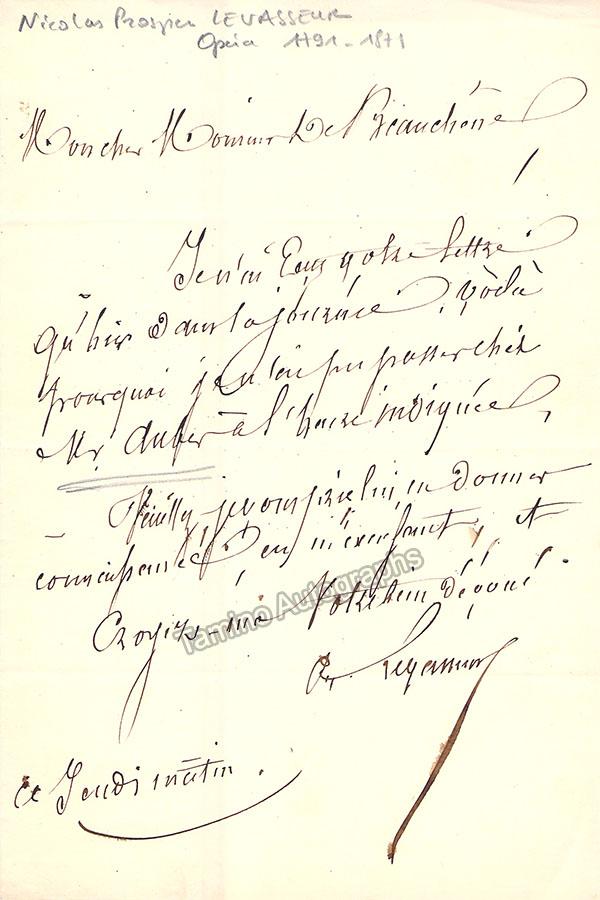 Nicolas Prosper LEVASSEUR
Opéra 1791-1871
Mon cher Monsieur De Beauchêne
Je n'ai reçu votre lettre
qu'hier dans la journée, voilà
pourquoi je n'ai pu passer chez
Mr. Auber à l'heure indiquée,
Veuillez je vous prie lui en donner
connaissance, en m'excusant, et
Croyez-moi Votre bien dévoué.
Levasseur
Ce Jeudi matin.
Tamino Autographs